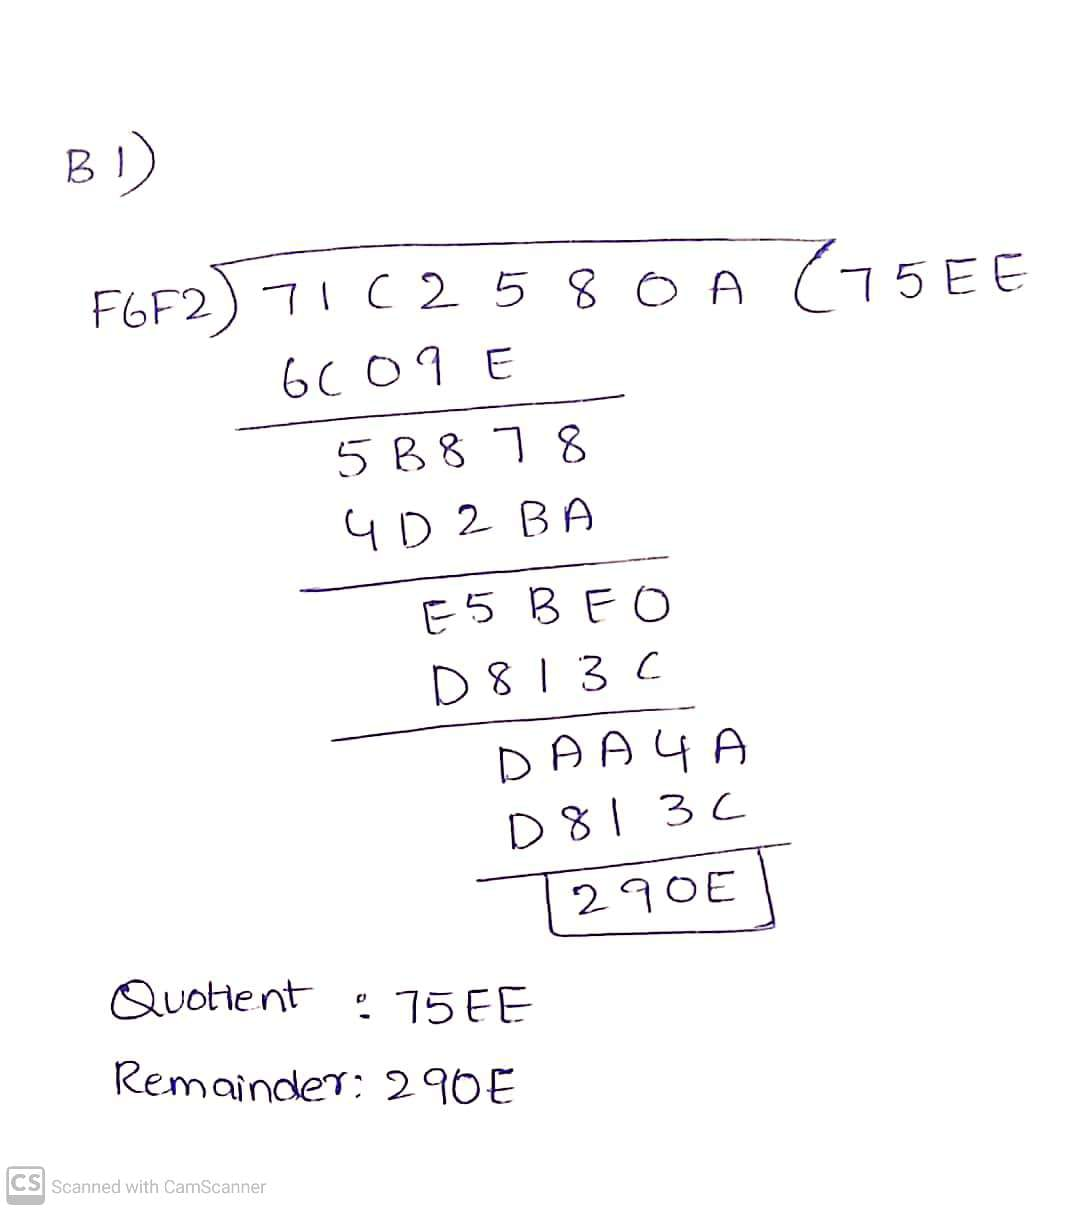 B1)
F6F2) 71C2580A (75EE
6C09E
5B878
4D2BA
E5BE0
D813C
DAA4A
D813C
290E
Quotient : 75EE
Remainder: 290E
CS Scanned with CamScanner